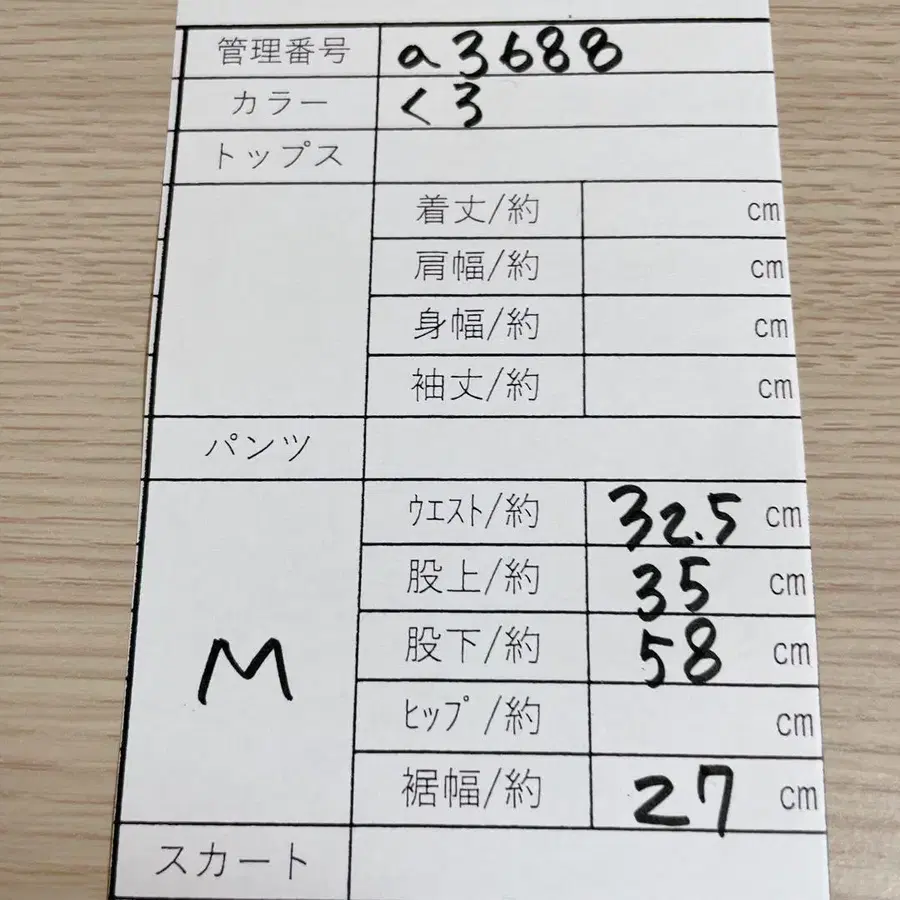 管理番号 a3688
カラー くろ
トップス
着丈/約 cm
肩幅/約 cm
身幅/約 cm
袖丈/約 cm
パンツ
ｳエスト/約 32.5 cm
股上/約 35 cm
M 股下/約 58 cm
ﾋップ /約 cm
裾幅/約 27 cm
スカート